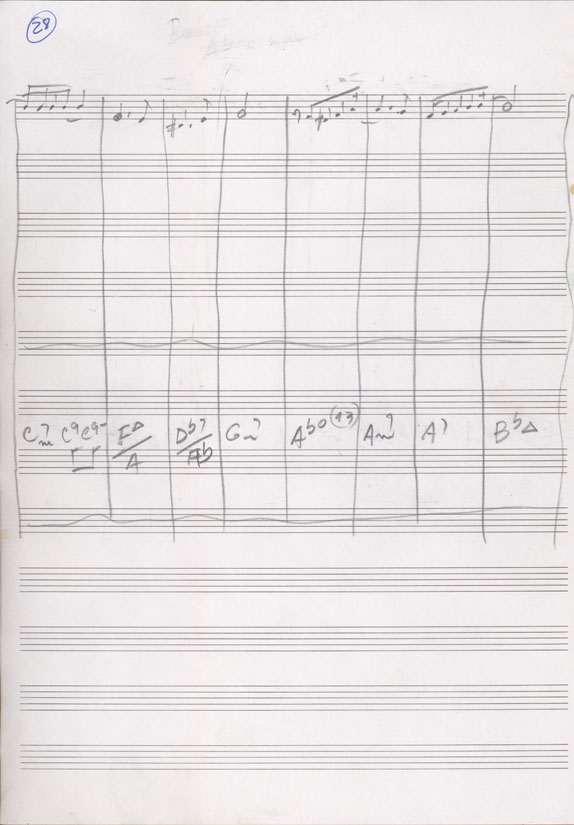 28
Cm7 C9 C9- FΔ/A Db7/Ab Gm7 Abo (13) Am7 A7 BbΔ